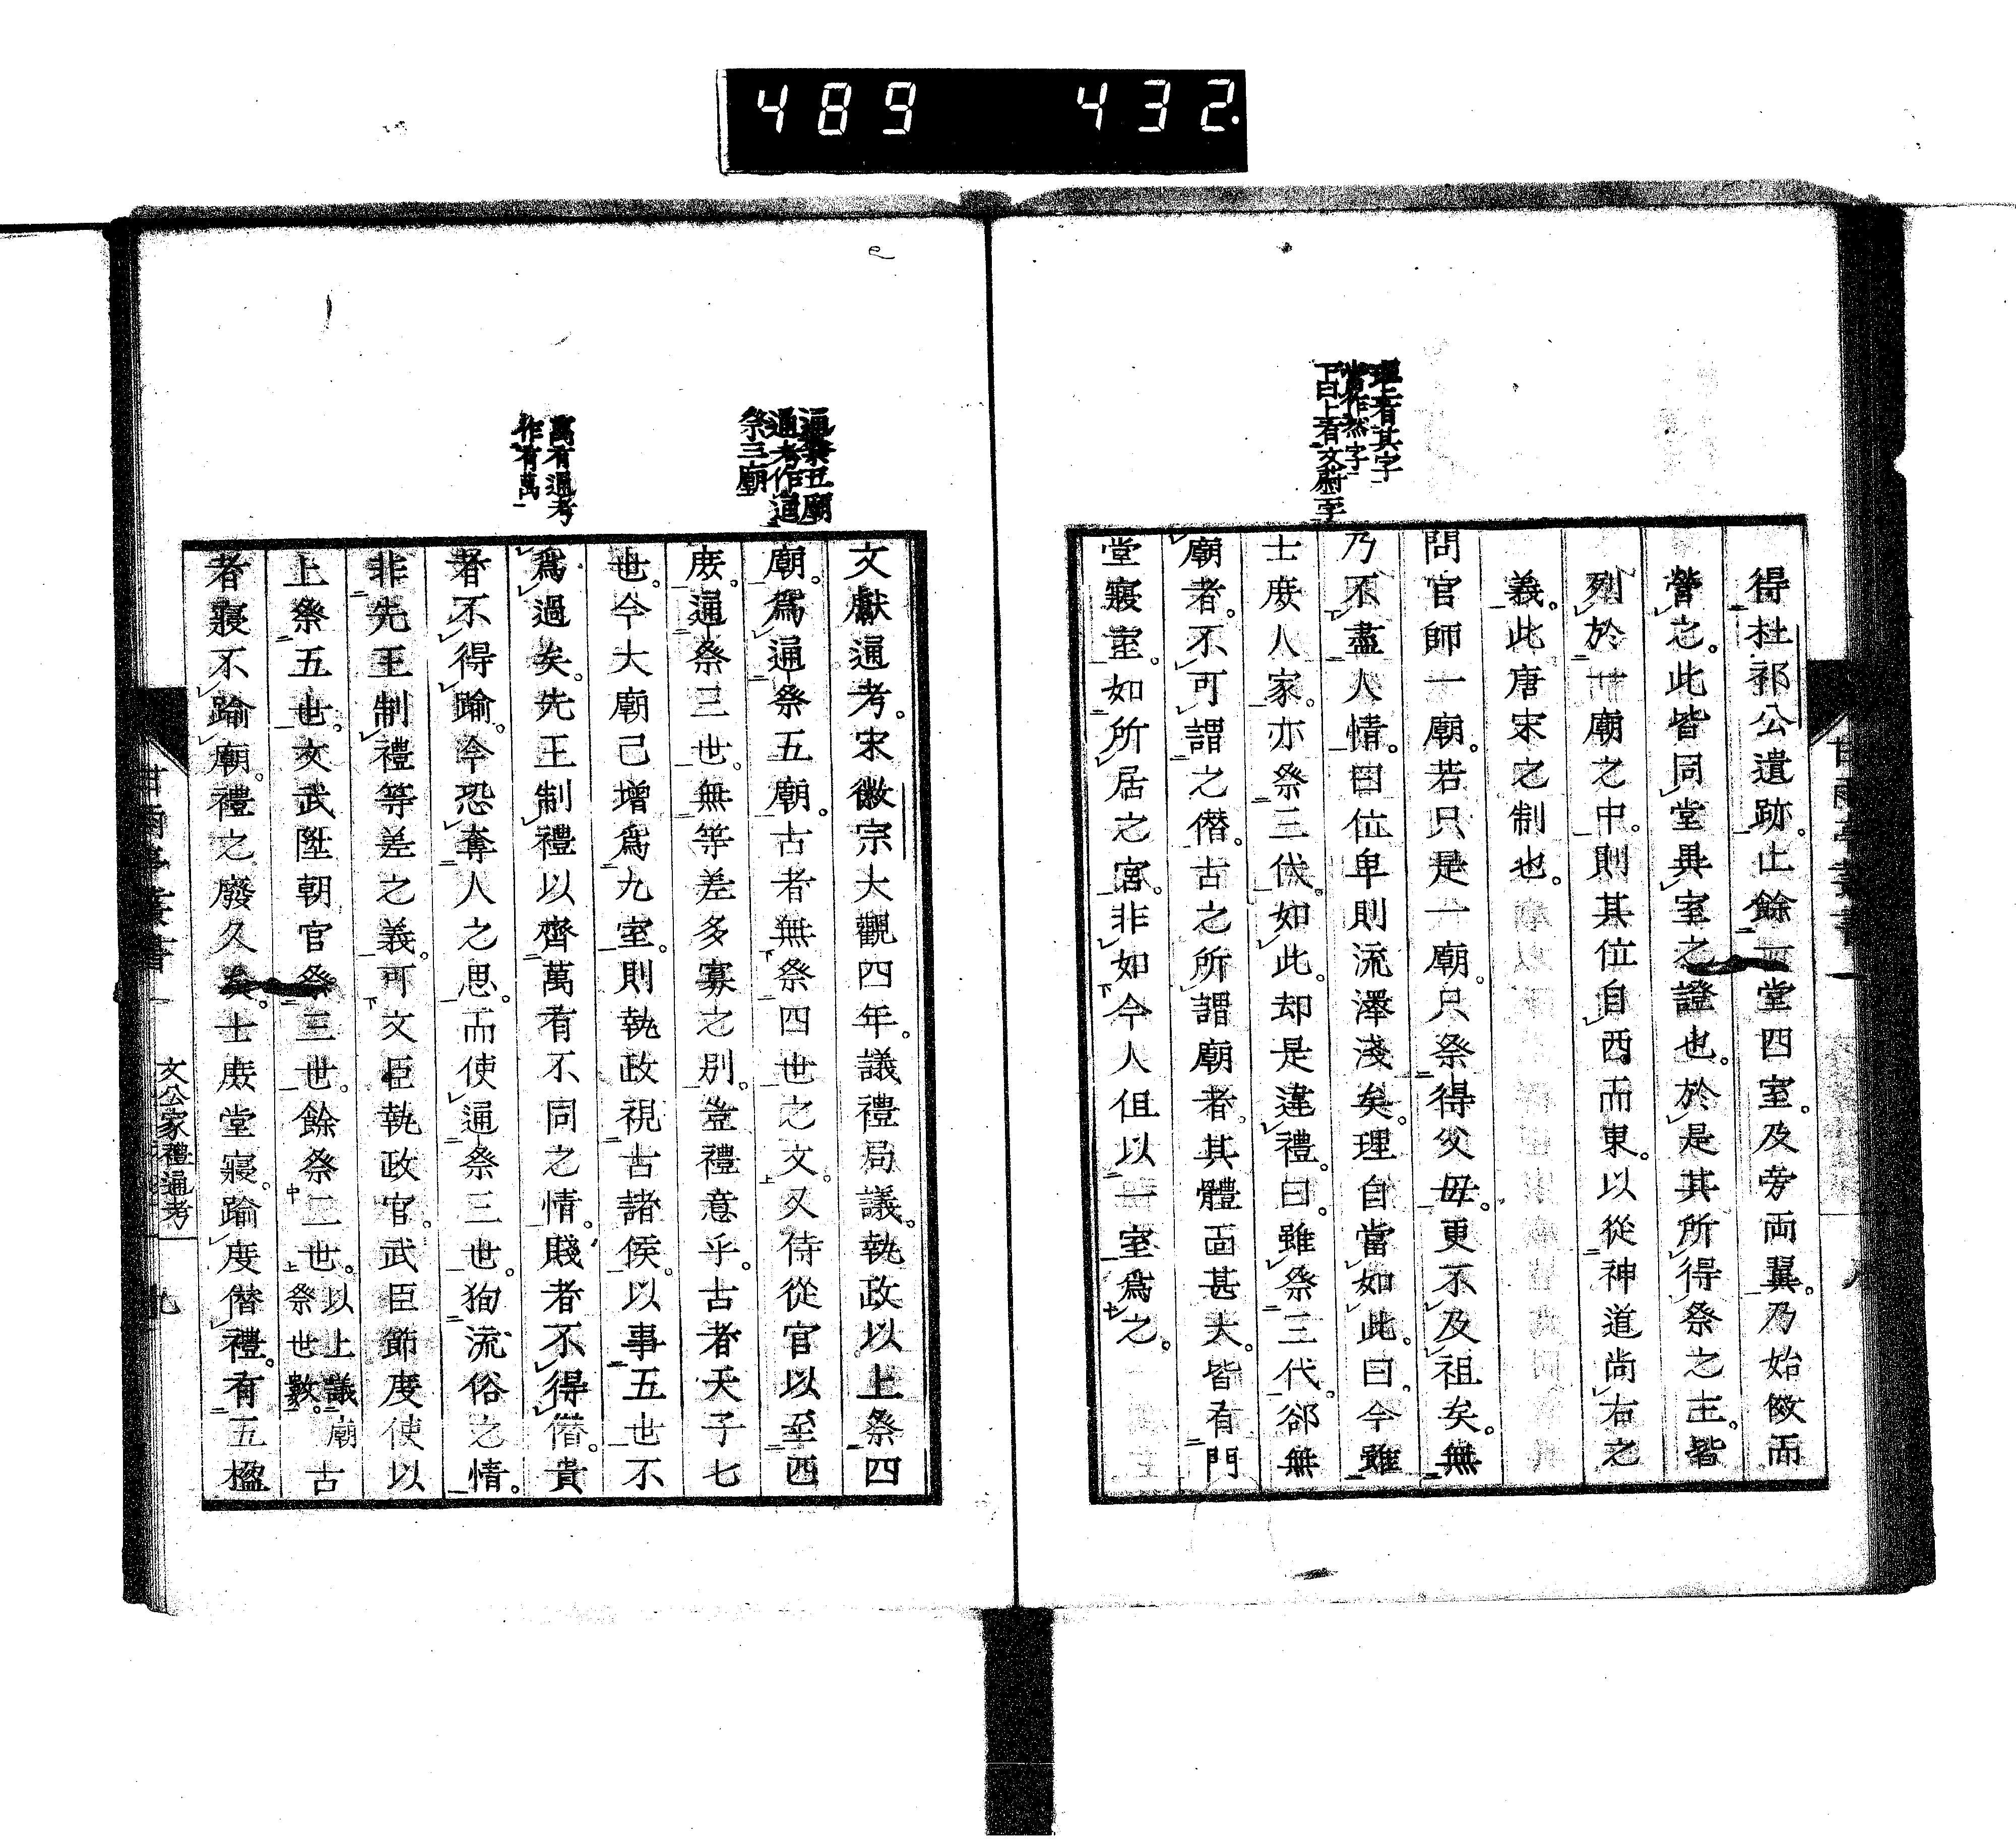 489 432.
理上看其字
當作然字
下曰上看文蔚至
得杜祁公遺跡。止餘一堂四室。及旁両翼。乃始倣而
營之。此皆同堂異室之證也。於是其所得祭之主。皆
列於一廟之中。則其位自西而東。以從神道尚右之
義。此唐宋之制也。
問官師一廟。若只是一廟。只祭得父毋。更不及祖矣。無
乃不盡人情。曰位卑則流澤淺矣。理自當如此。曰今雖
士庶人家。亦祭三代。如此。却是違禮。曰。雖祭三代。卻無
廟者。不可謂之僭。古之所謂廟者。其體面甚大。皆有門
堂寢室。如所居之宮。非如今人但以一室爲之。
通祭五廟
通考作通
祭三廟
萬有通考
作有萬
文獻通考。宋徽宗大觀四年。議禮局議。執政以上祭四
廟。爲通祭五廟。古者無祭四世之文。又侍從官以至西
庶。通祭三世。無等差多寡之別。豈禮意乎。古者天子七
世。今大廟已增爲九室。則執政視古諸侯。以事五世不
爲過矣。先王制禮以齊萬有不同之情。賤者不得僭。貴
者不得踰。今恐奪人之思。而使通祭三世。狥流俗之情。
非先王制禮等差之義。可文臣執政官。武臣節度使以
上祭五世。文武陞朝官祭三世。餘祭二世。以上議廟祭世數。古
者寢不踰廟。禮之廢久矣。士庶堂寢。踰度僭禮。有五楹
文公家禮通考
九